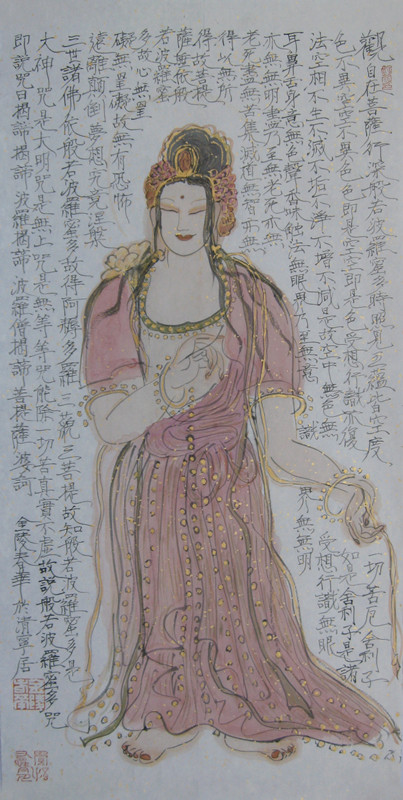 觀自在菩薩行深般若波羅蜜多時照見五蘊皆空度
一切苦厄舍利子
色不異空空不異色色即是空空即是色受想行識亦復
如是舍利子是諸
法空相不生不滅不垢不淨不增不減是故空中無色無
受想行識無眼
耳鼻舌身意無色聲香味觸法無眼界乃至無意識
界無無明
亦無無明盡乃至無老死亦無
老死盡無苦集滅道無智亦無
得以無所
得故菩提
薩依般
若波羅蜜
多故心無罣
礙無罣礙故無有恐怖
遠離顛倒夢想究竟涅槃
三世諸佛依般若波羅蜜多故得阿耨多羅三藐三菩提故知般若波羅蜜多是
大神咒是大明咒是無上咒是無等等咒能除一切苦真實不虛故說般若波羅蜜多咒
即說咒曰揭諦揭諦波羅揭諦波羅僧揭諦菩提薩婆訶
金陵春華於清寧居